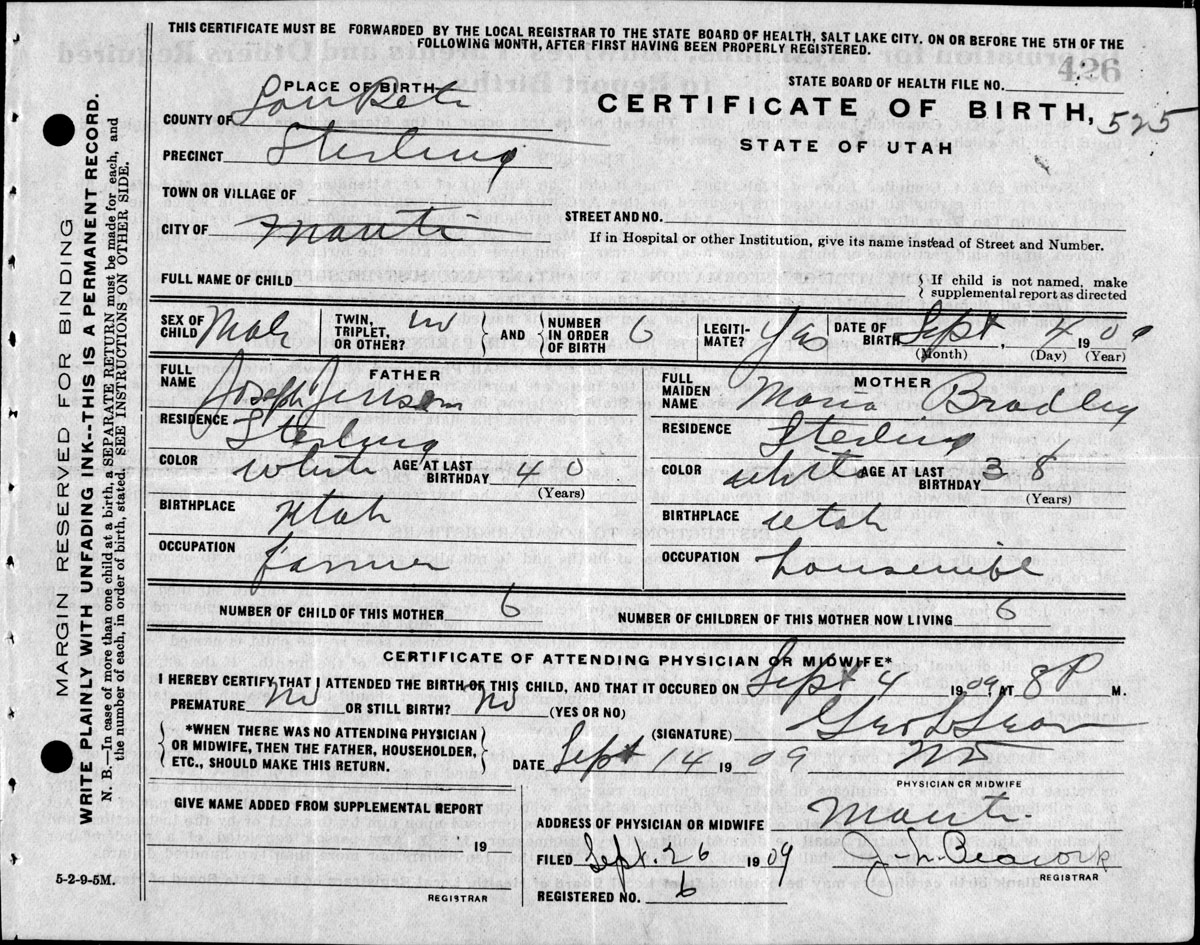 THIS CERTIFICATE MUST BE FORWARDED BY THE LOCAL REGISTRAR TO THE STATE BOARD OF HEALTH, SALT LAKE CITY, ON OR BEFORE THE 5TH OF THE
FOLLOWING MONTH, AFTER FIRST HAVING BEEN PROPERLY REGISTERED.
426
STATE BOARD OF HEALTH FILE NO.
PLACE OF BIRTH
CERTIFICATE OF BIRTH, 525
COUNTY OF SanPete
STATE OF UTAH
PRECINCT Sterling
TOWN OR VILLAGE OF
STREET AND NO.
CITY OF Manti
If in Hospital or other Institution, give its name instead of Street and Number.
FULL NAME OF CHILD
If child is not named, make
supplemental report as directed
SEX OF CHILD Male TWIN, TRIPLET, OR OTHER? no AND NUMBER IN ORDER OF BIRTH 6 LEGITI-MATE? Yes DATE OF BIRTH Sept, 4 1909
(Month) (Day) (Year)
FATHER
FULL NAME Joseph
RESIDENCE Sterling
COLOR White AGE AT LAST BIRTHDAY 40
(Years)
BIRTHPLACE Utah
OCCUPATION farmer
MOTHER
FULL MAIDEN NAME Maria Bradley
RESIDENCE Sterling
COLOR white AGE AT LAST BIRTHDAY 38
(Years)
BIRTHPLACE Utah
OCCUPATION housewife
NUMBER OF CHILD OF THIS MOTHER 6 NUMBER OF CHILDREN OF THIS MOTHER NOW LIVING 6
CERTIFICATE OF ATTENDING PHYSICIAN OR MIDWIFE*
I HEREBY CERTIFY THAT I ATTENDED THE BIRTH OF THIS CHILD, AND THAT IT OCCURED ON Sept 4 1909 AT 8 P M.
PREMATURE No OR STILL BIRTH? No (YES OR NO)
(SIGNATURE) Geo L
*WHEN THERE WAS NO ATTENDING PHYSICIAN
OR MIDWIFE, THEN THE FATHER, HOUSEHOLDER,
ETC., SHOULD MAKE THIS RETURN.
DATE Sept 14 1909
PHYSICIAN OR MIDWIFE
GIVE NAME ADDED FROM SUPPLEMENTAL REPORT
19
REGISTRAR
ADDRESS OF PHYSICIAN OR MIDWIFE Manti
FILED Sept. 26 1909
REGISTRAR
REGISTERED NO. 6
5-2-9-5M.
MARGIN RESERVED FOR BINDING
WRITE PLAINLY WITH UNFADING INK--THIS IS A PERMANENT RECORD.
N. B.—In case of more than one child at a birth, a SEPARATE RETURN must be made for each, and
the number of each, in order of birth, stated. SEE INSTRUCTIONS ON OTHER SIDE.